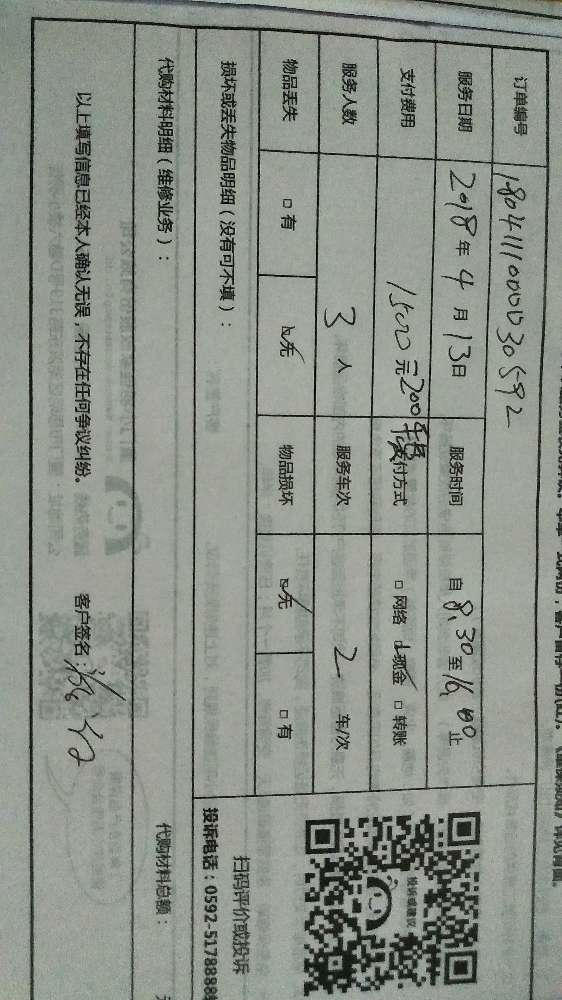 订单编号 180411100030592
服务日期 2018年4月13日 服务时间 自8:30至16:00止
支付费用 1500元 200 支付方式 □网络 ☑现金 □转账
服务人数 3人 服务车次 2车/次
物品丢失 □有 ☑无 物品损坏 ☑无 □有
损坏或丢失物品明细（没有可不填）：
代购材料明细（维修业务）： 代购材料总额：
以上填写信息已经本人确认无误，不存在任何争议纠纷。 客户签名：
投诉或建议
扫码评价或投诉
投诉电话：0592-5178888